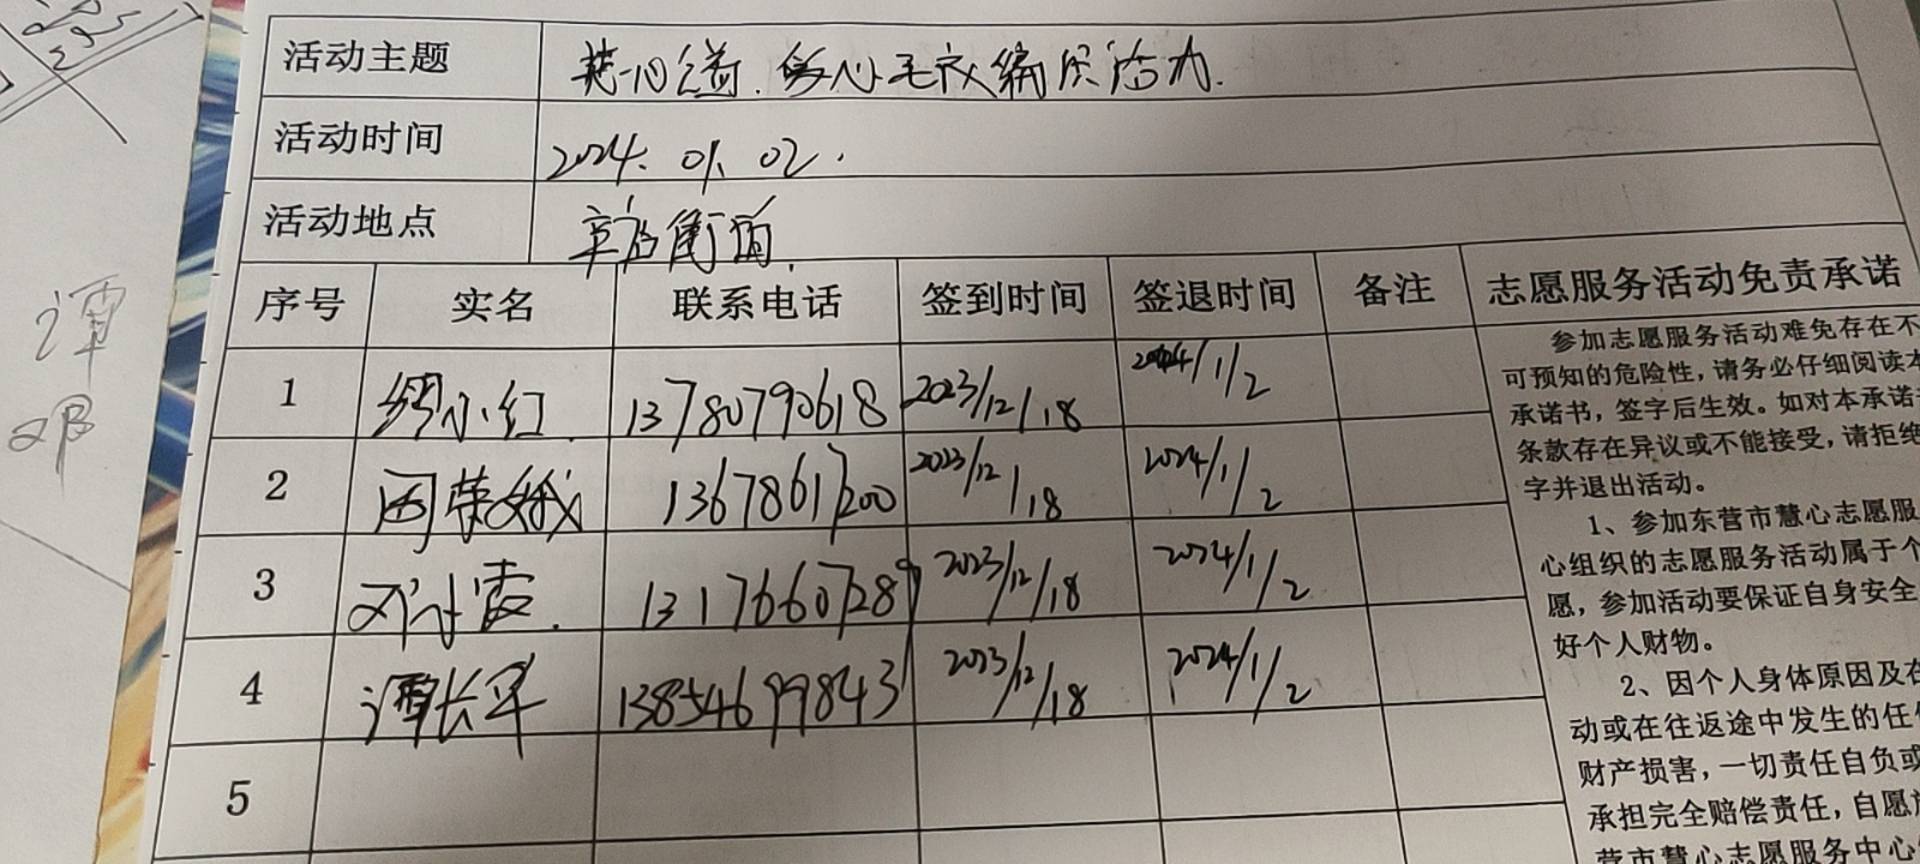 活动主题 慧心公益.爱心毛衣编织活动.
活动时间 2024.01.02.
活动地点 辛店街道.
序号 实名 联系电话 签到时间 签退时间 备注 志愿服务活动免责承诺
1 小红 13780790618 2023/12/18 2024/1/2
2 荣娥 13678617200 2023/12/18 2024/1/2
3 霞. 13176607289 2023/12/18 2024/1/2
4 谭长军 13854699843 2023/12/18 2024/1/2
5
参加志愿服务活动难免存在不
可预知的危险性，请务必仔细阅读本
承诺书，签字后生效。如对本承诺
条款存在异议或不能接受，请拒绝
字并退出活动。
1、参加东营市慧心志愿服
心组织的志愿服务活动属于个
愿，参加活动要保证自身安全
好个人财物。
2、因个人身体原因及在
动或在往返途中发生的任
财产损害，一切责任自负或
承担完全赔偿责任，自愿
营市慧心志愿服务中心
谭